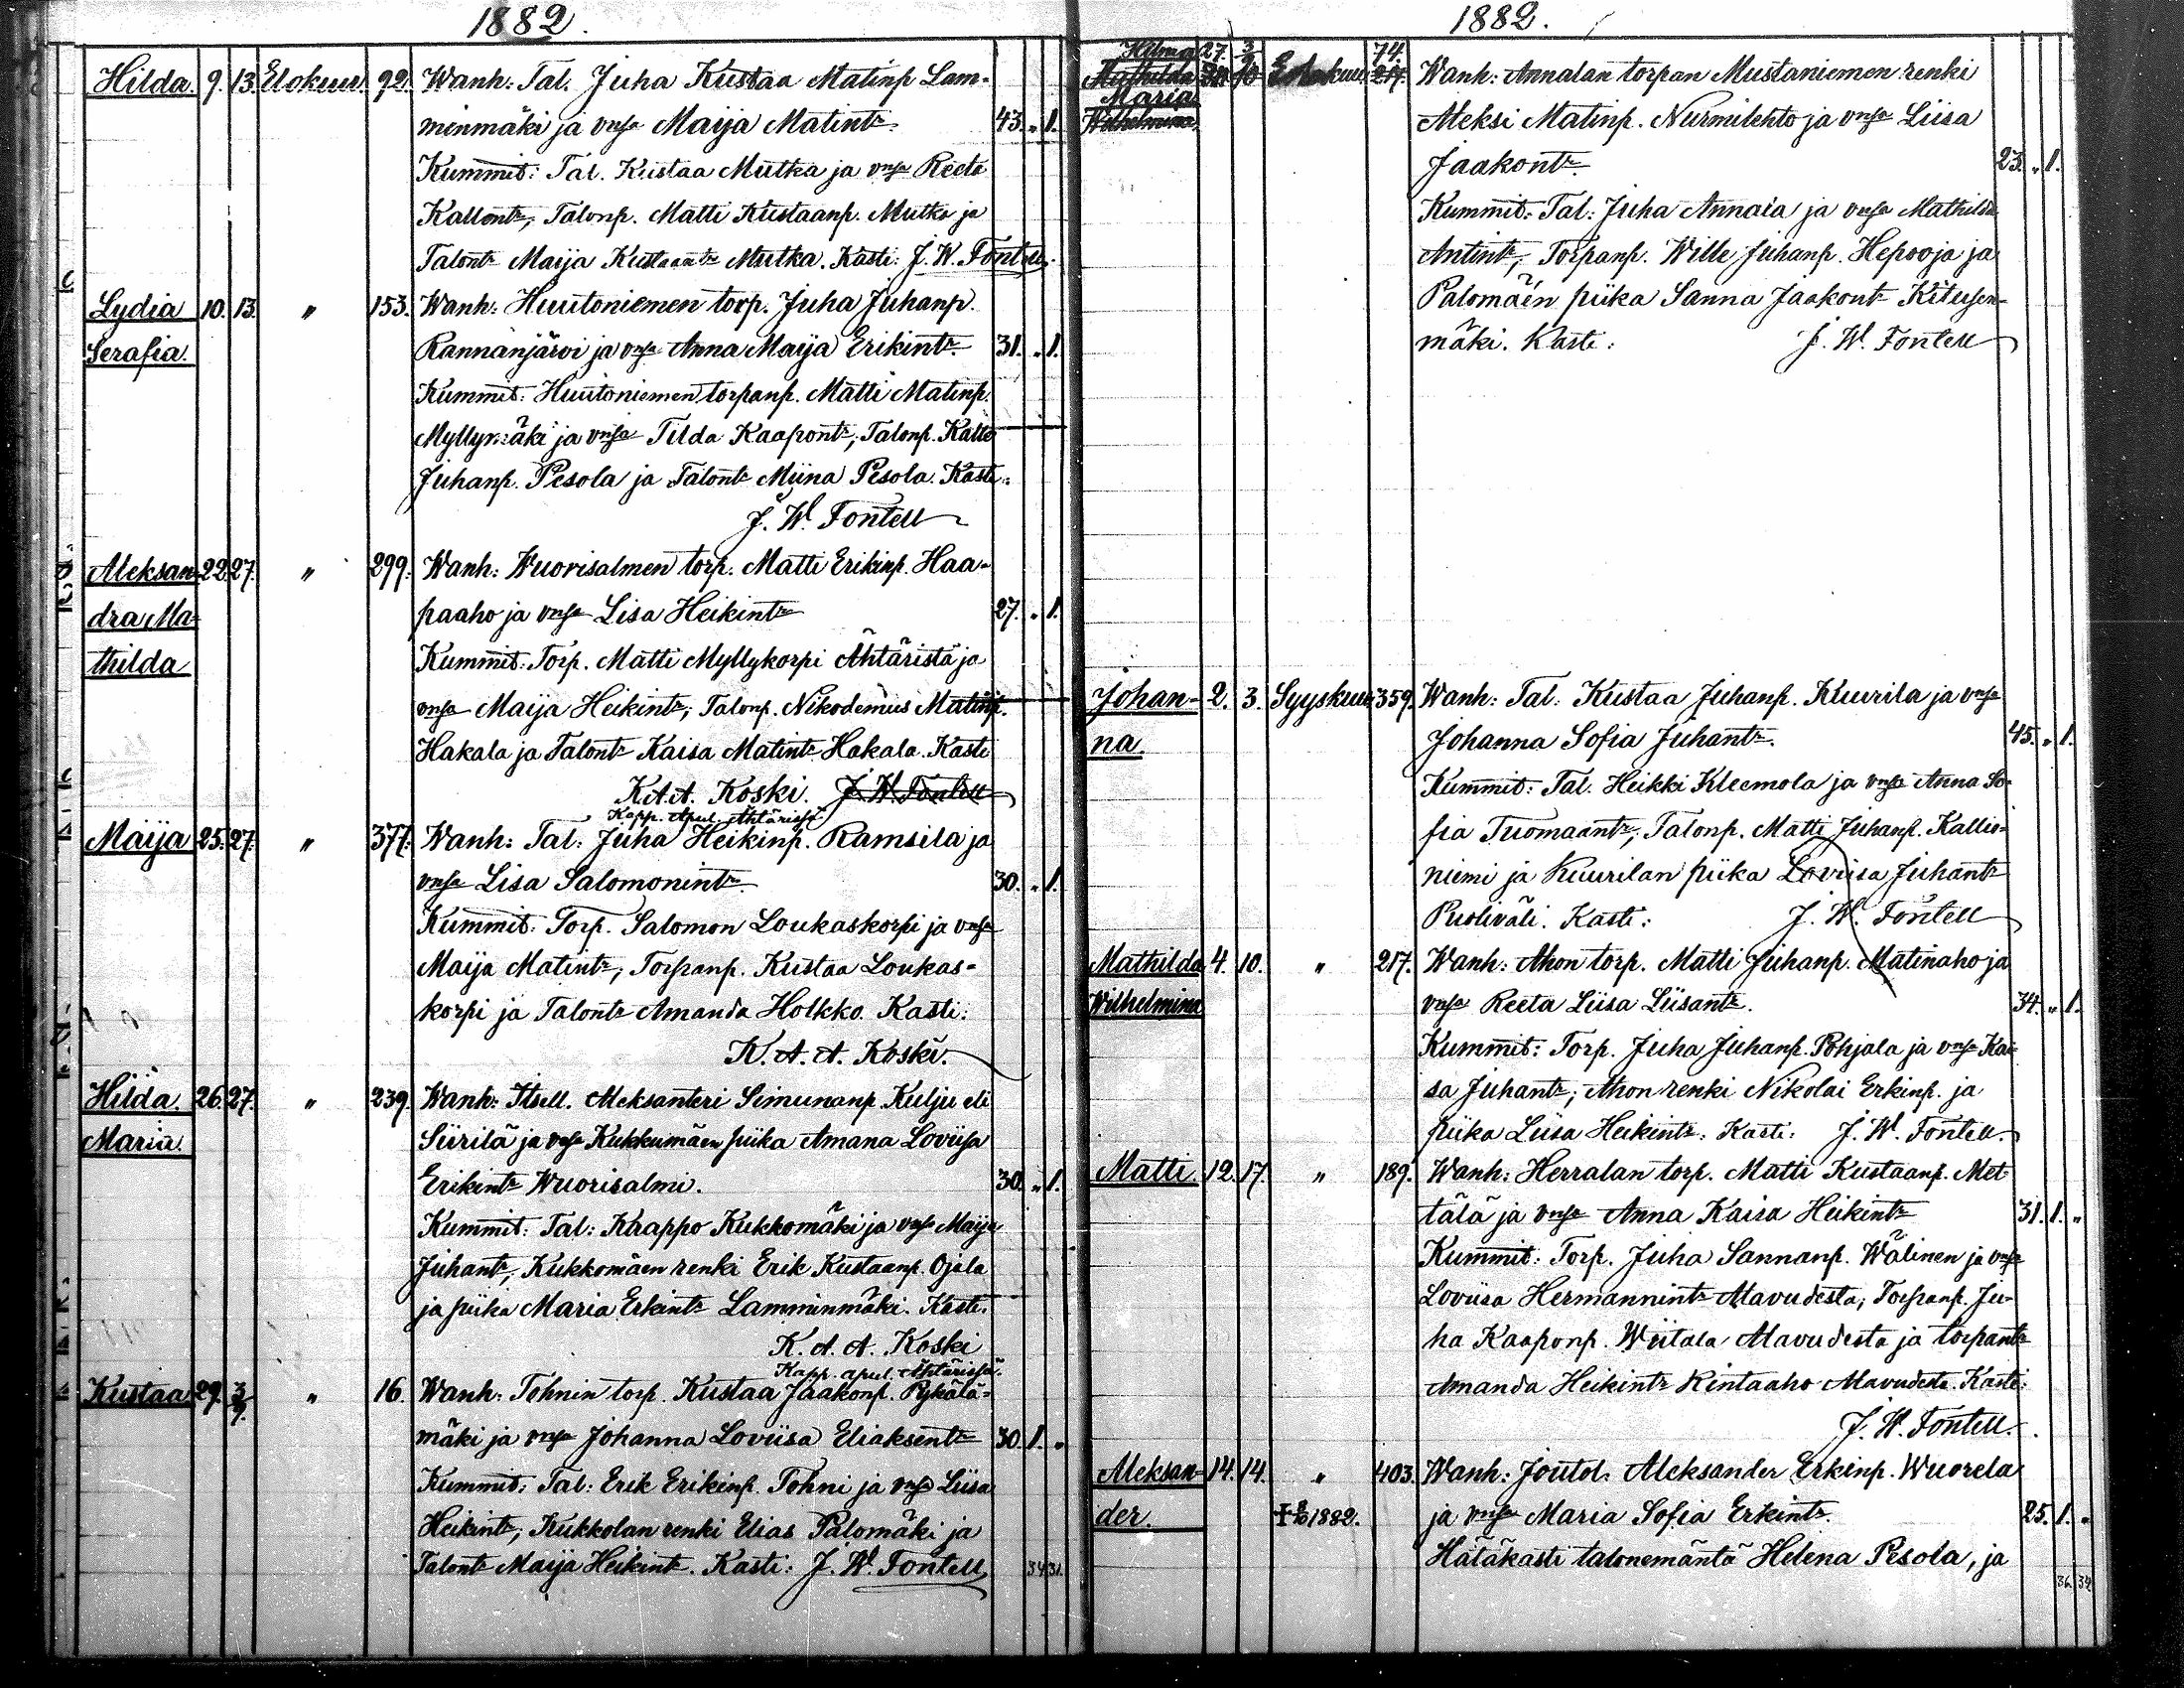 1882.
Hilda. 9. 13. Elokuu 99. Wanh: Tal. Juha Kustaa Matinp Lam-
minmäki ja vmsa Maija Matintr. 43. „ 1.
Kummit: Tal. Kustaa Mutka ja vmsa Reeta
Kallontr, Talonp. Matti Kustaanp. Mutka ja
Talontr Maija Kustaantr Mutka. Kasti: J. W. Fontell.
Lydia 10. 13. „ 153. Wanh: Huutoniemen torp. Juha Juhanp.
Serafia. Rannanjärvi ja vmsa Anna Maija Erikintr. 31. „ 1.
Kummit: Huutoniemen torpanp. Matti Matinp.
Myllymäki ja vmsa Tilda Kaapontr, Talonp. Kalle
Juhanp. Pesola ja Talontr Miina Pesola. Kasti:
J. W. Fontell
Aleksan- 22. 27. „ 299. Wanh: Wuorisalmen torp. Matti Erikinp. Haa-
dra Ma- paaho ja vmsa Lisa Heikintr 27. „ 1.
thilda Kummit: Torp. Matti Myllykorpi Ähtäristä ja
vmsa Maija Heikintr, Talonp. Nikodemus Matinp.
Hakala ja Talontr Kaisa Matintr Hakala. Kasti
K.A.A. Koski. J. W. Fontell
Kapp. Apul. Ähtärissä
Maija 25. 27. „ 377. Wanh: Tal: Juha Heikinp. Ramsila ja
vmsa Lisa Salomonintr. 30. „ 1.
Kummit: Torp. Salomon Loukaskorpi ja vmsa
Maija Matintr, Torpanp. Kustaa Loukas-
korpi ja Talontr Amanda Holkko. Kasti:
K. A. A. Koski.
Hilda. 26. 27. „ 239. Wanh: Itsell. Aleksanteri Simunanp. Kulju eli
Maria. Siirilä ja vmsa Kukkumäen piika Amana Loviisa
Erikintr Wuorisalmi. 30. „ 1.
Kummit: Tal: Kaappo Kukkomäki ja vmsa Maija
Juhantr, Kukkomäen renki Erik Kustaanp. Ojala
ja piika Maria Erkintr Lamminmäki. Kasti:
K. A. A. Koski
Kapp. apul. Ähtärissä.
Kustaa 29. 3/9. „ 16. Wanh: Töhnin torp. Kustaa Jaakonp. Pykälä-
mäki ja vmsa Johanna Loviisa Eliaksentr 30. 1. „
Kummit: Tal: Erik Erikinp. Töhni ja vmsa Liisa
Heikintr, Kukkolan renki Elias Palomäki ja
Talontr Maija Heikintr. Kasti: J. W. Fontell 34 31.
1882.
Hilma 27. 3/9 74.
Mathilda Elokuu 217. Wanh: Annalan torpan Mustaniemen renki
Maria
Wilhelmina Aleksi Matinp. Nurmilehto ja vmsa Liisa
Jaakontr. 23. „ 1.
Kummit: Tal: Juha Annala ja vmsa Mathilda
Antintr, Torpanp. Wille Juhanp. Hepooja ja
Palomäen piika Sanna Jaakontr Kitusen-
mäki. Kasti: J. W. Fontell
Johan- 2. 3. Syyskuu 359. Wanh: Tal: Kustaa Juhanp. Kuurila ja vmsa
na. Johanna Sofia Juhantr. 45. „ 1.
Kummit: Tal. Heikki Kleemola ja vmsa Anna So-
fia Tuomaantr, Talonp. Matti Juhanp. Kallio-
niemi ja Kuurilan piika Loviisa Juhantr
Puoliväli. Kasti: J. W. Fontell
Mathilda 4. 10. „ 217. Wanh: Ahon torp. Matti Juhanp. Matinaho ja
Wilhelmina vmsa Reeta Liisa Liisantr. 34. „ 1.
Kummit: Torp. Juha Juhanp. Pohjala ja vmsa Kai-
sa Juhantr; Ahon renki Nikolai Erkinp. ja
piika Liisa Heikintr. Kasti: J. W. Fontell.
Matti. 12. 17. „ 189. Wanh: Herralan torp. Matti Kustaanp. Met-
tälä ja vmsa Anna Kaisa Heikintr 31. 1. „
Kummit: Torp. Juha Sannanp. Wälinen ja vmsa
Loviisa Hermannintr Alavudesta; Torpanp. Ju-
ha Kaaponp. Wiitala Alavudesta ja torpantr
Amanda Heikintr Rintaaho Alavudesta. Kasti:
J. W. Fontell.
Aleksan- 14. 14. „ 403. Wanh: Joutol. Aleksander Erkinp. Wuorela
der. 1882. ja vmsa Maria Sofia Erkintr. 25. 1. „
Hätäkasti talonemäntä Helena Pesola, ja
36. 34